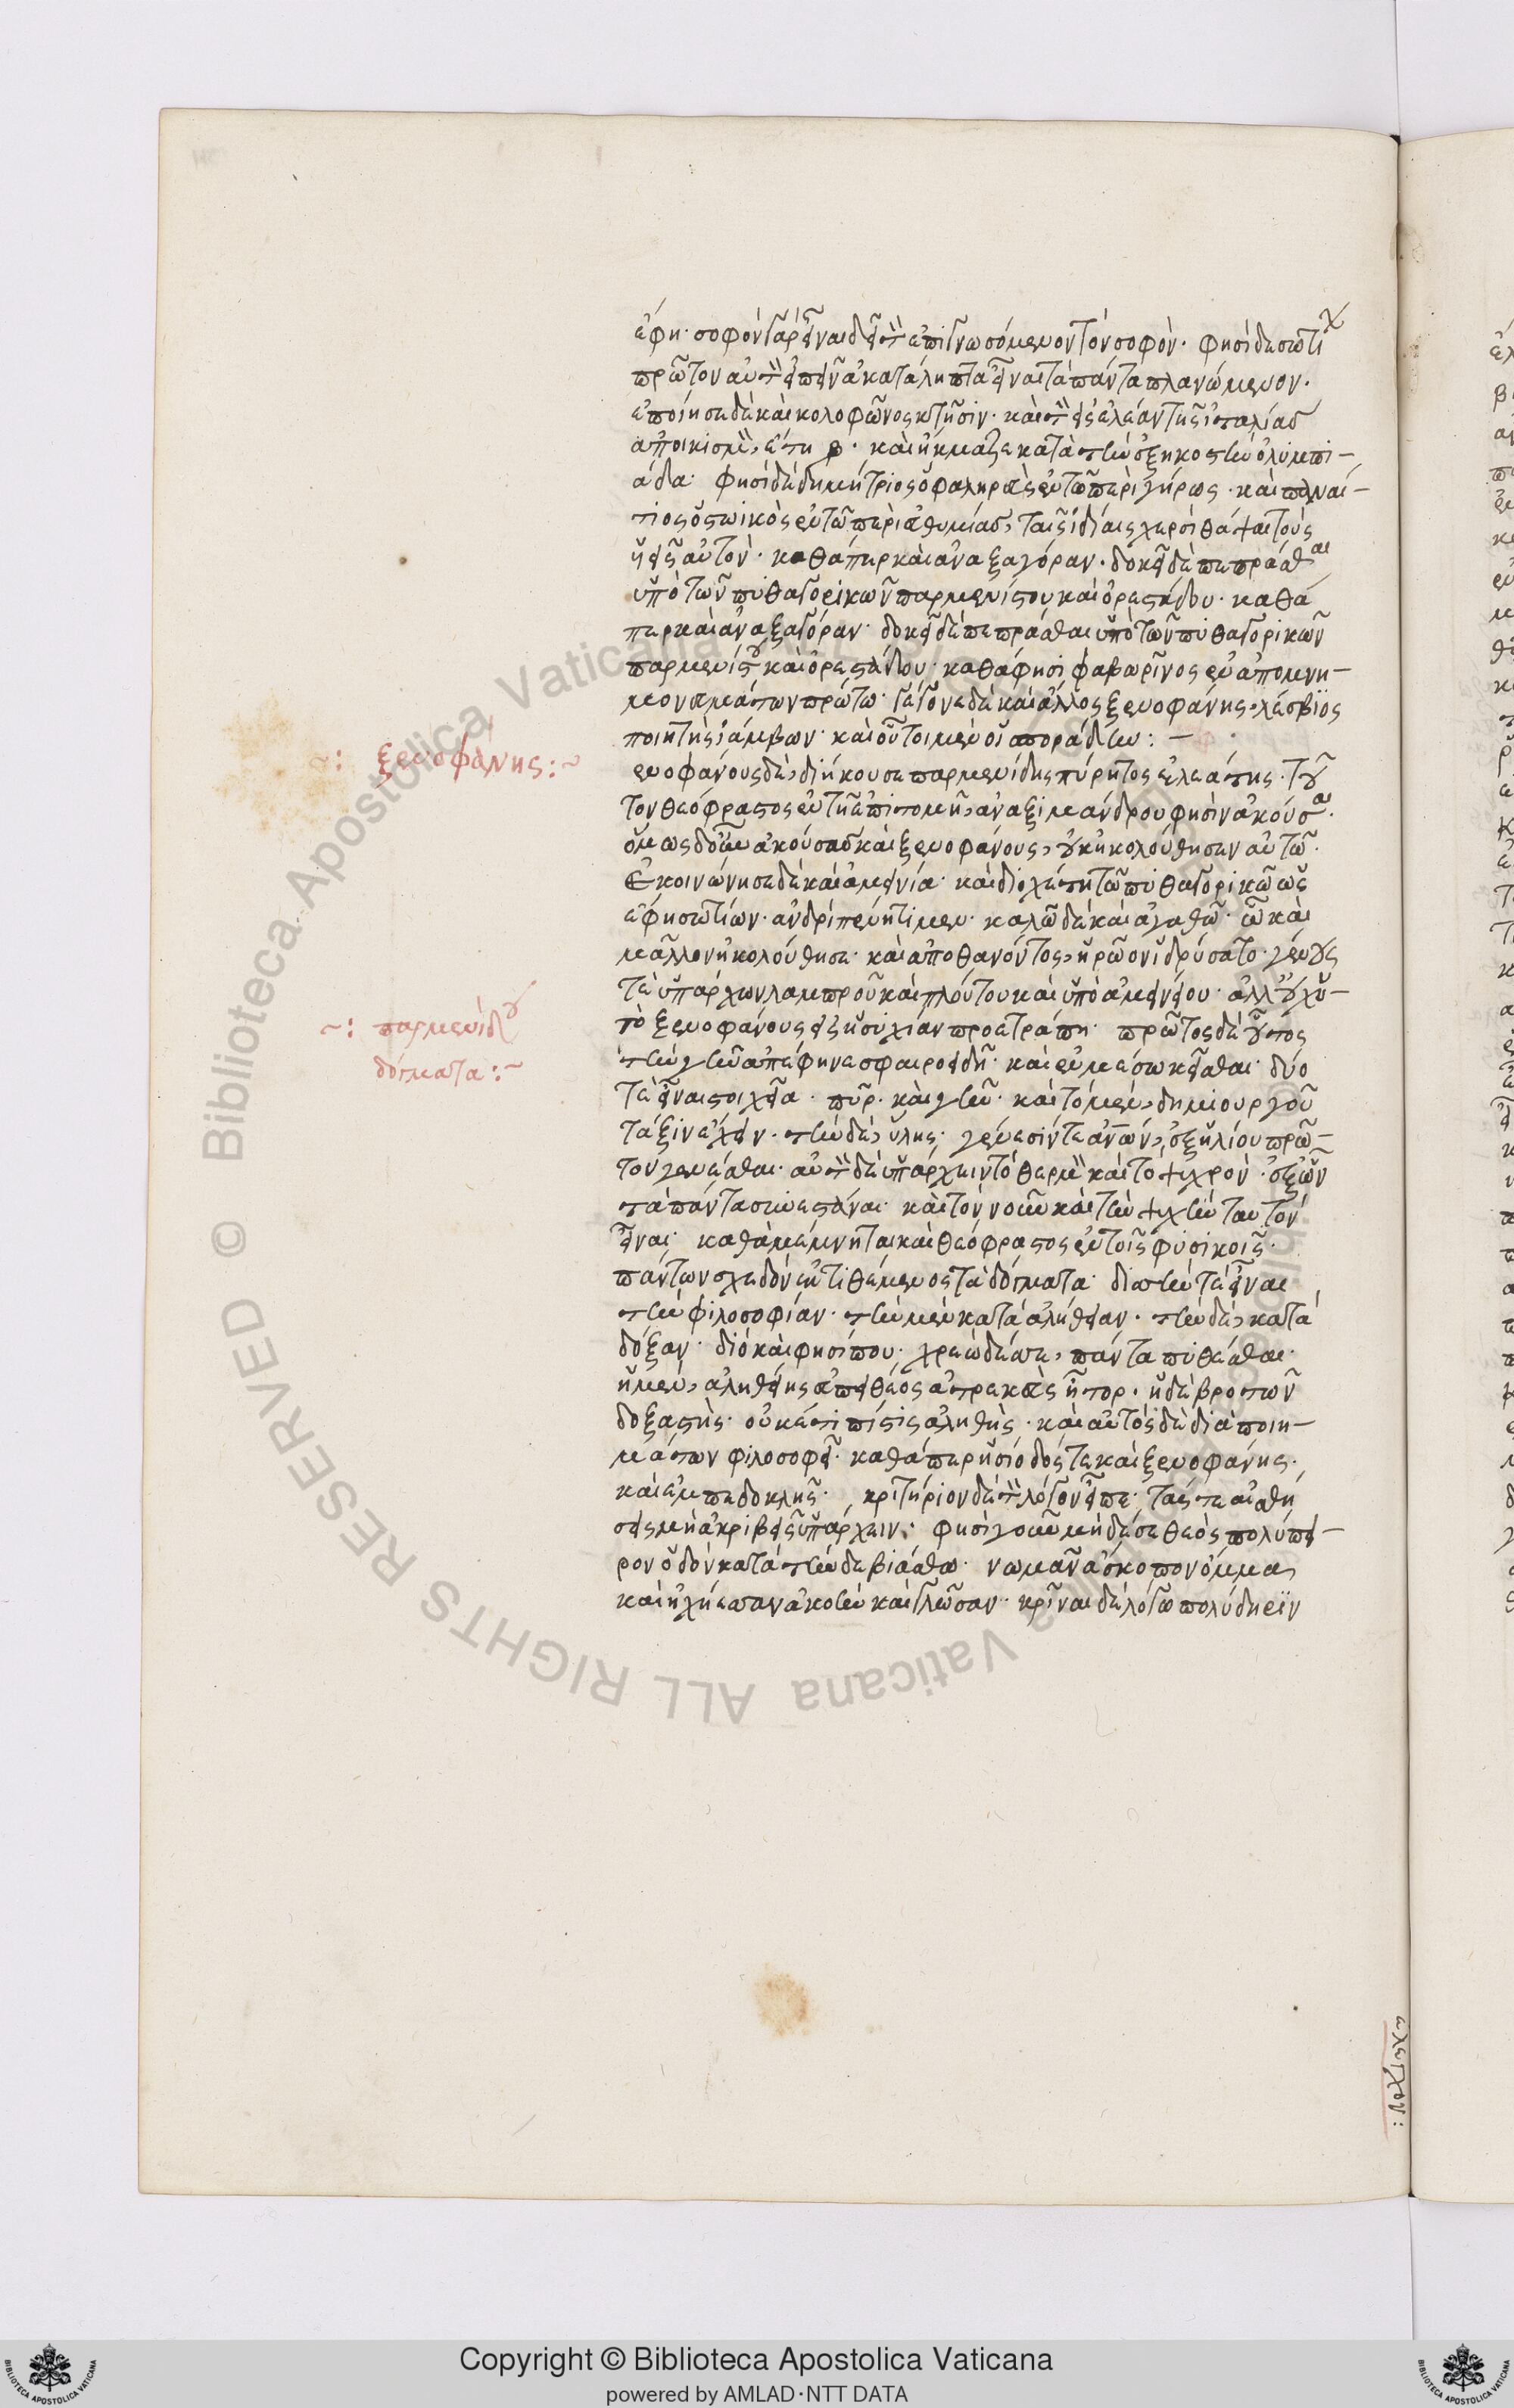 ἔφη· σοφὸν γὰρ εἶναι δεῖ τὸν ἐπιγνωσόμενον τὸν σοφόν. φησὶ δὲ σωτί
πρῶτον αὐτὸν εἰπεῖν ἀκατάληπτα εἶναι τὰ πάντα πλανώμενον.
ἐποίησε δὲ καὶ κολοφῶνος κτῆσιν. καὶ τὸν εἰς ἐλέαν τῆς ἰταλίας
ἀποικισμὸν, ἔπη β. καὶ ἤκμαζε κατὰ τὴν ἑξηκοστὴν ὀλυμπι-
άδα. φησὶ δὲ δημήτριος ὁ φαληρεὺς ἐν τῷ περὶ γήρως. καὶ παναί-
τιος ὁ στωικὸς ἐν τῷ περὶ εὐθυμίας, ταῖς ἰδίαις χερσὶ θάψαι τοὺς
υἱεῖς αὐτόν. καθάπερ καὶ ἀναξαγόραν. δοκεῖ δὲ πεπρᾶσθαι
ὑπὸ τῶν πυθαγορικῶν παρμενίσκου καὶ ὀρεστάδου. καθά
περ καὶ ἀναξαγόραν. δοκεῖ δὲ πεπρᾶσθαι ὑπὸ τῶν πυθαγορικῶν
παρμενίσκου καὶ ὀρεστάδου. καθά φησι φαβωρῖνος ἐν ἀπομνη-
μονευμάτων πρώτω. γέγονε δὲ καὶ ἄλλος ξενοφάνης λέσβιος
ποιητὴς ἰάμβων. καὶ οὗτοι μὲν οἱ σποράδην: —
: ξενοφάνης: ~
ενοφάνους δὲ, διήκουσε παρμενίδης πύρητος ἐλεάτης. τοῦ
τον θεόφραστος ἐν τῇ ἐπιτομῇ, ἀναξιμάνδρου φησὶν ἀκοῦσαι.
ὅμως δ' οὖν ἀκούσας καὶ ξενοφάνους, οὐκ ἠκολούθησεν αὐτῶ.
ἐκοινώνησε δὲ καὶ ἀμεινία. καὶ διοχέτη τῷ πυθαγορικῷ ὡς
ἔφη σωτίων. ἀνδρὶ πένητι μέν. καλῷ δὲ καὶ ἀγαθῷ. ᾧ καὶ
μᾶλλον ἠκολούθησε. καὶ ἀποθανόντος, ἡρῷον ἱδρύσατο. γένους
τε ὑπάρχων λαμπροῦ καὶ πλούτου καὶ ὑπὸ ἀμεινίου. ἀλλ' οὐχ ὑ-
πὸ ξενοφάνους εἰς ἡσυχίαν προετράπη. πρῶτος δὲ οὗτος
~: παρμενίδου
τὴν γῆν ἀπέφηνε σφαιροειδῆ. καὶ ἐν μέσω κεῖσθαι. δύο
δόγματα: ~
τε εἶναι στοιχεῖα. πῦρ. καὶ γῆν. καὶ τὸ μὲν, δημιουργοῦ
τάξιν ἔχειν. τὴν δὲ, ὕλης. γένεσίν τε ἀνων, ἐξ ἡλίου πρῶ-
τον γενέσθαι. αὐτὸν δὲ ὑπάρχειν τὸ θερμὸν καὶ τὸ ψυχρόν. ἐξ ὧν
τὰ πάντα συνεστάναι. καὶ τὸν νοῦν καὶ τὴν ψυχὴν ταυτὸν
εἶναι. καθὰ μέμνηται καὶ θεόφραστος ἐν τοῖς φυσικοῖς.
πάντων σχεδὸν ἐκτιθέμενος τὰ δόγματα. δισσήν τε εἶναι
τὴν φιλοσοφίαν. τὴν μὲν κατὰ ἀλήθειαν. τὴν δὲ, κατὰ
δόξαν. διὸ καὶ φησί που. χρεὼ δέ σε, πάντα πυθέσθαι.
ἠμὲν, ἀληθείης εὐπειθέος ἀτρεκὲς ἦτορ. ἠδὲ βροτῶν
δοξαστῆς. οὐκ ἔτι πίστις ἀληθής. καὶ αὐτὸς δὲ διὰ ποιη-
μάτων φιλοσοφεῖ. καθάπερ ἡσίοδός τε καὶ ξενοφάνης.
καὶ ἐμπεδοκλῆς. κριτήριον δὲ τὸν λόγον εἶπε. τάς τε αἰσθή
σεις μὴ ἀκριβεῖς ὑπάρχειν. φησὶ γοῦν μὴ δέ σε θεὸς πολύπει-
ρον ὁδὸν κατὰ τήνδε βιάσθω. νωμᾶν ἄσκοπον ὄμμα,
καὶ ἠχήεσσαν ἀκοὴν καὶ γλῶσσαν. κρῖναι δὲ λόγω πολύδηριν